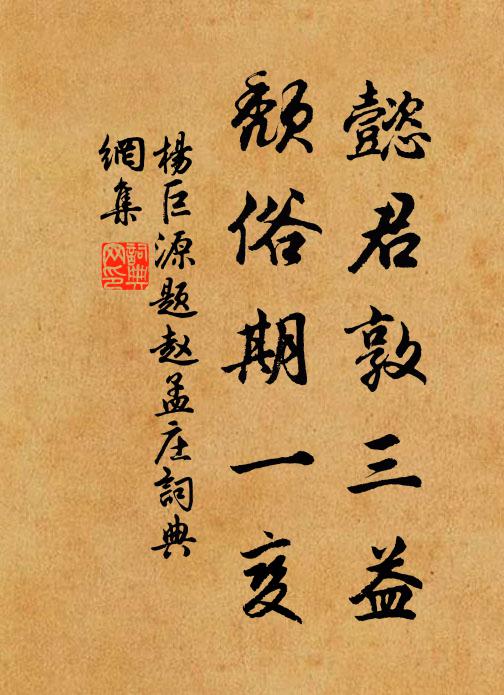 懿君敦三益
颓俗期一变
楊巨源题赵孟庄詞典
網集
詞典
网印